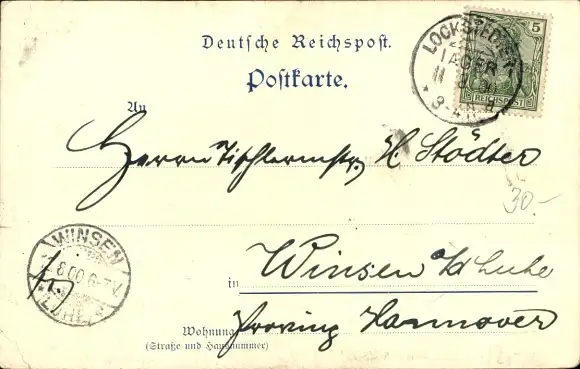 Deutsche Reichspost.
Postkarte.
LOCKSTEDTER
LAGER
5
REICHSPOST
An
Herrn Tischlermstr. H. Städter
30.-
WINSEN
8.00.6-7V.
(LUHE)
in Winsen a/d Luhe
Wohnung Provinz Hannover
(Straße und Hausnummer)